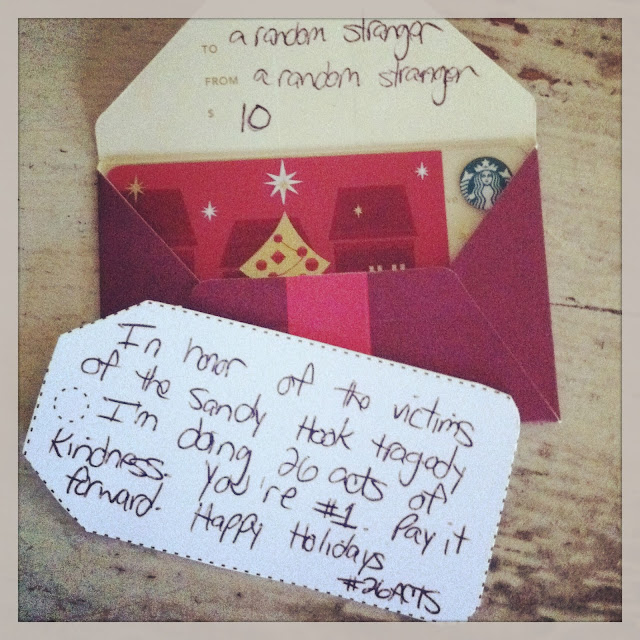 TO a random stranger
FROM a random stranger
$ 10
In honor of the victims
of the Sandy Hook tragady
I'm doing 26 acts of
Kindness. You're #1. Pay it
forward. Happy Holidays
#26ACTS